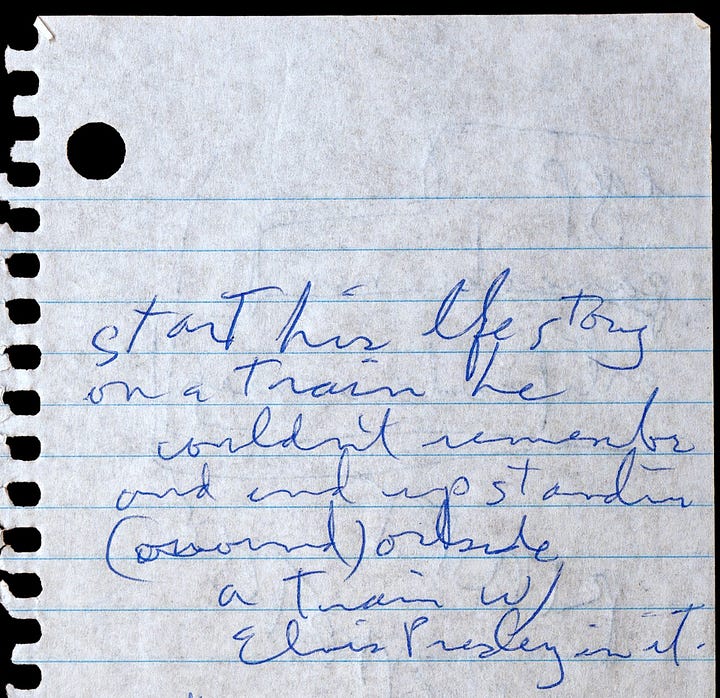 start his life story
on a train he
couldn't remember
and end up standin
(around) outside
a train w/
Elvis Presley in it.